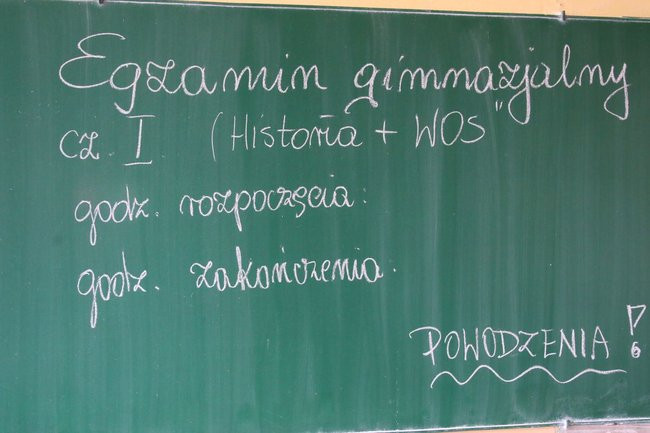 Egzamin gimnazjalny
cz. I (Historia + WOS"
godz. rozpoczęcia:
godz. zakończenia:
POWODZENIA!